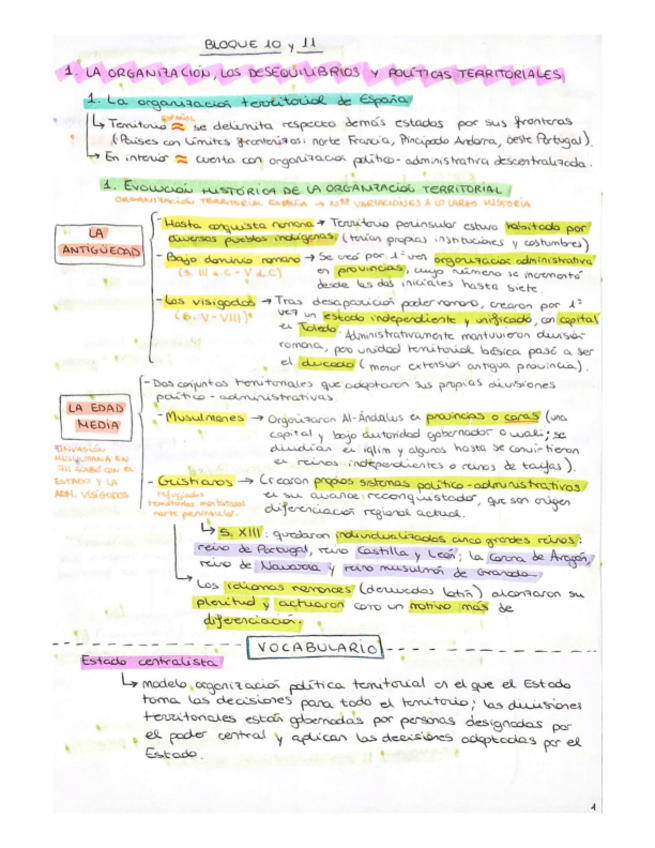 BLOQUE 10 y 11
1. LA ORGANIZACIÓN, LOS DESEQUILIBRIOS Y POLÍTICAS TERRITORIALES
1. La organización territorial de España
ESPAÑOL
↳ Territorio ≈ se delimita respecto demás estados por sus fronteras
(Países con límites fronterizos: norte Francia, Principado Andorra, oeste Portugal).
↳ En interior ≈ cuenta con organización político-administrativa descentralizada.
1. EVOLUCIÓN HISTÓRICA DE LA ORGANIZACIÓN TERRITORIAL
ORGANIZACIÓN TERRITORIAL ESPAÑA → Nas VARIACIONES A LO LARGO HISTORIA
LA
ANTIGÜEDAD
- Hasta conquista romana → Territorio peninsular estuvo habitado por
diversos pueblos indígenas, (tenían propias instituciones y costumbres)
- Bajo dominio romano → Se creó por 1ª vez organización administrativa
(s. III a.C - V d.C)
en provincias, cuyo número se incrementó
desde las dos iniciales hasta siete.
- Los visigodos → Tras desaparición poder romano, crearon por 1ª
(s. V - VIII)
vez un estado independiente y unificado, con capital
en Toledo. Administrativamente mantuvieron división
romana, pero unidad territorial básica pasó a ser
el ducado (menor extensión antigua provincia).
LA EDAD
MEDIA
INVASIÓN
MUSULMANA EN
711 ACABÓ CON EL
ESTADO Y LA
ADM. VISIGODOS
- Dos conjuntos territoriales que adoptaron sus propias divisiones
político-administrativas.
- Musulmanes → Organizaron Al-Ándalus en provincias o coras (una
capital y bajo autoridad gobernador o walí; se
dividían en iqlim y algunos hasta se convirtieron
en reinos independientes o reinos de taifas).
- Cristianos → Crearon propios sistemas político-administrativos
refugiados
territorios montañosos
norte peninsular.
en su avance reconquistador, que son origen
diferenciación regional actual.
↳ S. XIII: quedaron individualizados cinco grandes reinos:
reino de Portugal, reino Castilla y León; la Corona de Aragón,
reino de Navarra y reino musulmán de Granada.
↳ Los idiomas romances (derivados latín) alcanzaron su
plenitud y actuaron como un motivo más de
diferenciación.
VOCABULARIO
Estado centralista
↳ modelo organización política territorial en el que el Estado
toma las decisiones para todo el territorio; las divisiones
territoriales están gobernadas por personas designadas por
el poder central y aplican las decisiones adoptadas por el
Estado.
1